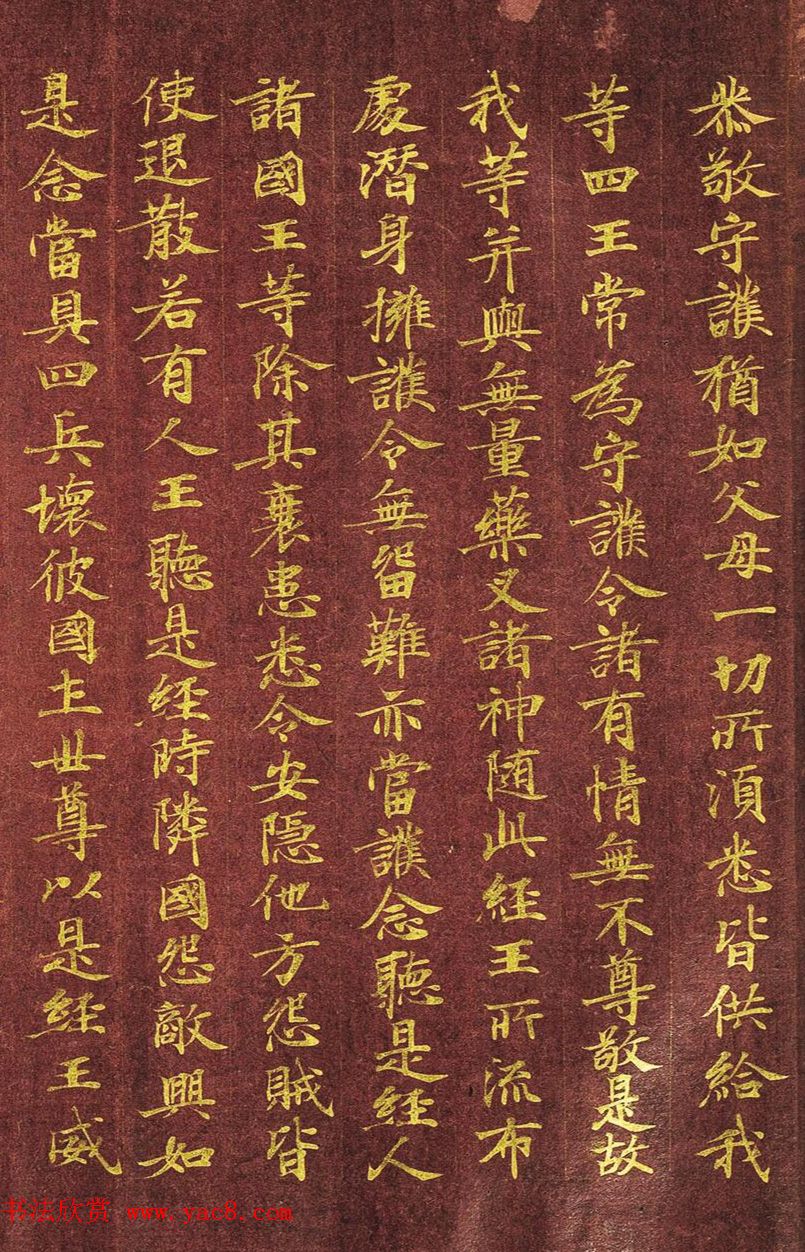 恭敬守護猶如父母一切所須悉皆供給我
等四王常為守護令諸有情無不尊敬是故
我等并與無量藥叉諸神随此經王所流布
處潛身擁護令無留難亦當護念聽是經人
諸國王等除其衰患悉令安隱他方怨賊皆
使退散若有人王聽是經時隣國怨敵興如
是念當具四兵壞彼國土世尊以是經王威
书法欣赏 www.yac8.com